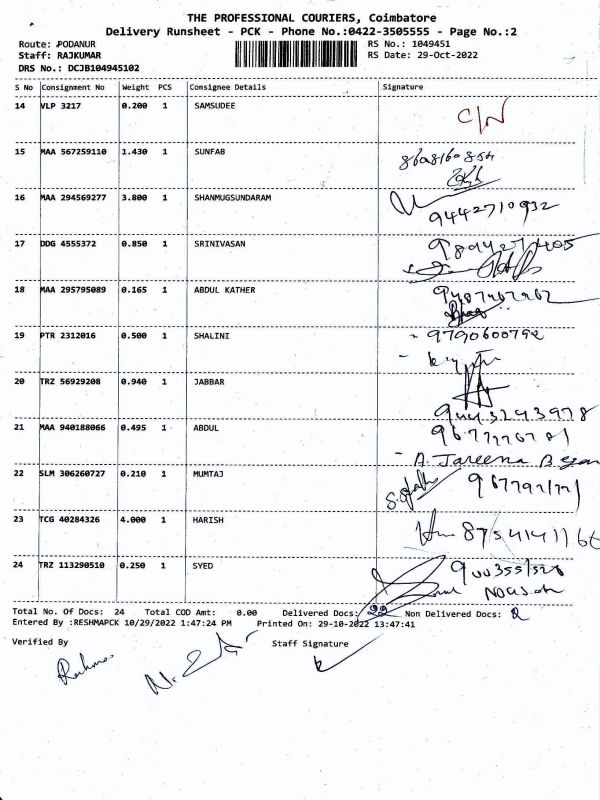 THE PROFESSIONAL COURIERS, Coimbatore
Delivery Runsheet - PCK - Phone No.:0422-3505555 - Page No.:2
Route: PODANUR
RS No.: 1049451
Staff: RAJKUMAR
RS Date: 29-Oct-2022
DRS No.: DCJB104945102
S No Consignment No Weight PCS Consignee Details Signature
14 VLP 3217 0.200 1 SAMSUDEE C/N
15 MAA 567259110 1.430 1 SUNFAB
16 MAA 294569277 3.800 1 SHANMUGSUNDARAM
9442710932
17 DDG 4555372 0.850 1 SRINIVASAN
18 MAA 295795089 0.165 1 ABDUL KATHER
19 PTR 2312016 0.500 1 SHALINI 9790600792
20 TRZ 56929208 0.940 1 JABBAR
9443243978
21 MAA 940188066 0.495 1 ABDUL
A. Jareena Began
22 SLM 306260727 0.210 1 MUMTAJ
23 TCG 40284326 4.000 1 HARISH
24 TRZ 113290510 0.250 1 SYED
Total No. Of Docs: 24 Total COD Amt: 0.00 Delivered Docs: 22 Non Delivered Docs: 2
Entered By :RESHMAPCK 10/29/2022 1:47:24 PM Printed On: 29-10-2022 13:47:41
Verified By Staff Signature